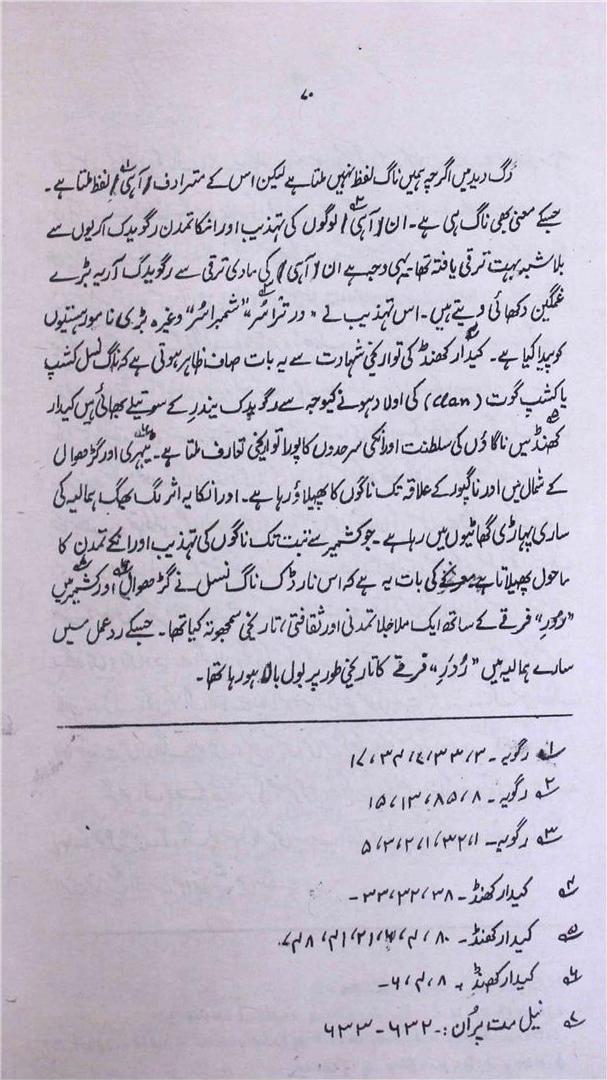 ۷۰
رگ وید میں اگرچہ ہمیں ناگ لفظ نہیں ملتا ہے لیکن اس کے مترادف /آہی/۱ لفظ ملتا ہے۔
جسکے معنی بھی ناگ ہی ہے۔ ان /آہی/۲ لوگوں کی تہذیب اور انکا تمدن رگویدک آریوں سے
بلاشبہ بہت ترقی یافتہ تھا یہی وجہ ہے ان /آہی/ کی مادی ترقی سے رگویدک آریہ بڑے
غمگین دکھائی دیتے ہیں۔ اس تہذیب نے "ورتراسُر"۳ "شمبراسُر" وغیرہ بڑی نامور ہستیوں
کو پیدا کیا ہے۔ کیدار کھنڈ۴ کی تواریخی شہادت سے یہ بات صاف ظاہر ہوتی ہے کہ ناگ نسل کشپ
یا کشپ گوت (clan) کی اولاد ہونے کیوجہ سے رگویدک یندر کے سوتیلے بھائی ہیں کیدار
کھنڈ۵ میں ناگاؤں کی سلطنت اور انکی سرحدوں کا پورا تواریخی تعارف ملتا ہے۔ ٹیہری۶ اور گڑھوال
کے شمال میں اور ناگپور کے علاقہ تک ناگوں کا پھیلاؤ رہا ہے۔ اور انکا یہ اثر لگ بھگ ہمالیہ کی
ساری پہاڑی گھاٹیوں میں رہا ہے۔ جو کشمیر سے تبت تک ناگوں کی تہذیب اور انکے تمدن کا
ماحول پھیلاتا ہے کی بات یہ ہے کہ اس نارڈک ناگ نسل نے گڑھوال اور کشمیر۷ میں
"رُدر" فرقے کے ساتھ ایک ملا جلا تمدنی اور ثقافتی، تاریخی سمجھوتہ کیا تھا۔ جسکے ردعمل میں
سارے ہمالیہ میں "رُدر" فرقے کا تاریخی طور پر بول بالا ہو رہا تھا۔
۱ رگوید۔
۲ رگوید۔ ۸، ۸۵، ۱۳، ۱۵
۳ رگوید۔ ۱، ۳۲، ۱، ۲، ۳، ۵
۴ کیدار کھنڈ۔ ۳۸، ۳۲، ۳۳۔
۵ کیدار کھنڈ۔
۶ کیدار کھنڈ۔ ۸، ۴، ۶۔
۷ نیل مت پران:۔ ۶۳۲-۶۳۳